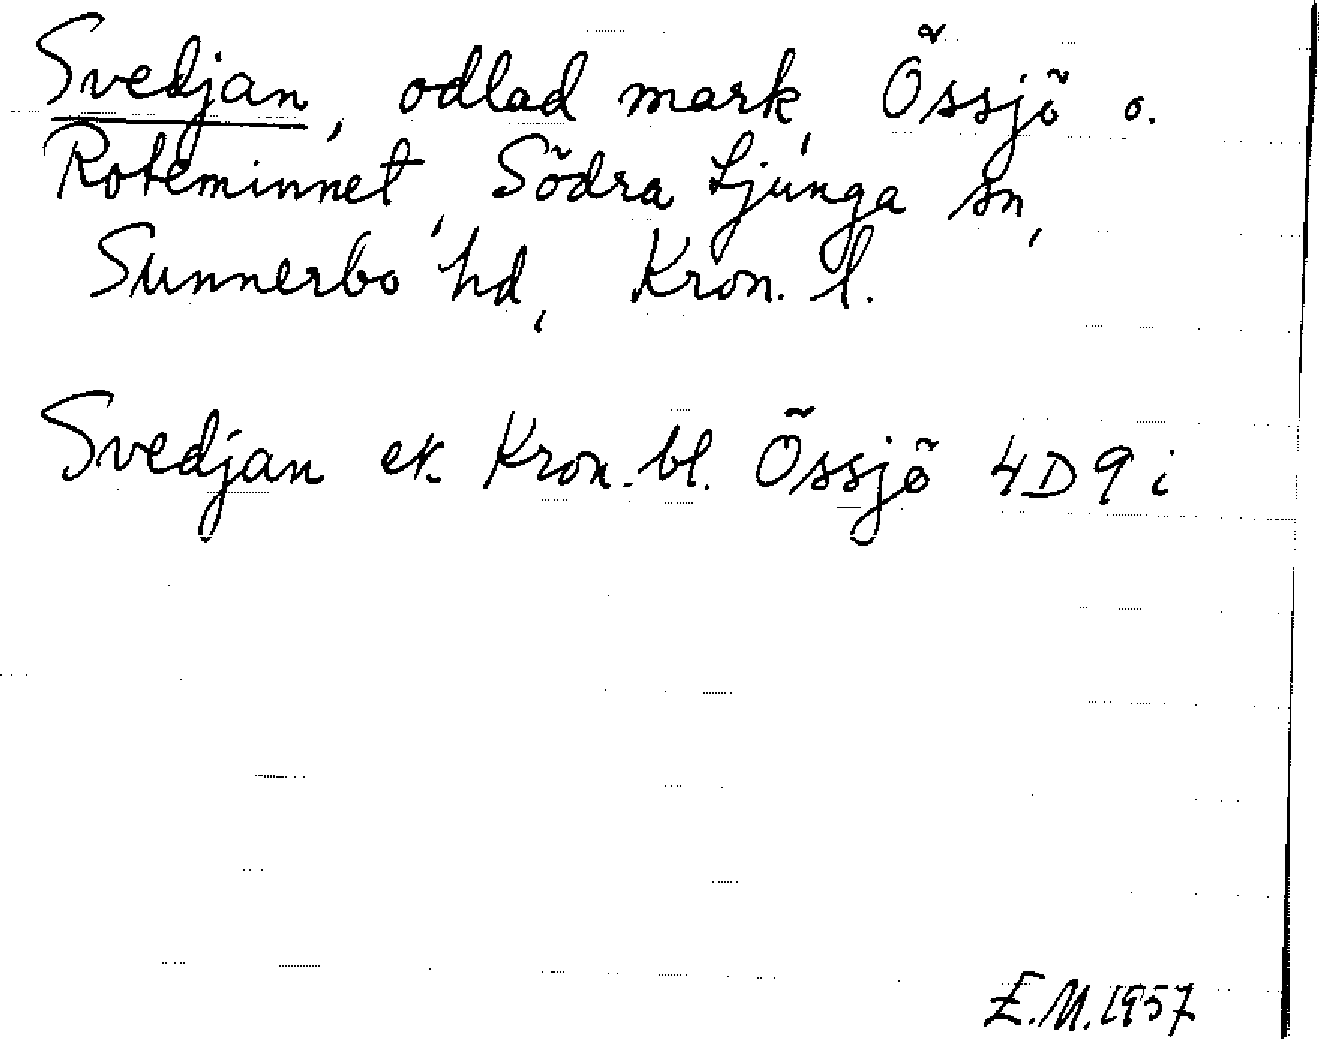 Svedjan, odlad mark, Össjö o.
Roteminnet, Södra Ljunga sn,
Sunnerbo hd, Kron. l.
Svedjan ek. Kron. bl. Össjö 4D9i
E.M.1957